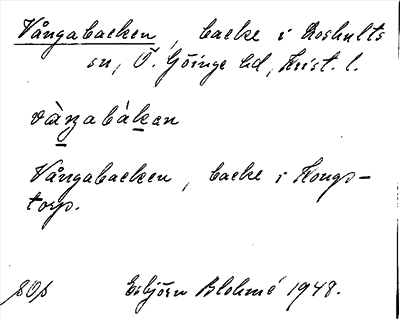 Vångabacken, backe i Loshults
sn, Ö. Göinge hd, Krist. l.
vàŋabákan
Vångabacken, backe i Kongs-
torp.
sOs Esbjörn Blohmé 1948.